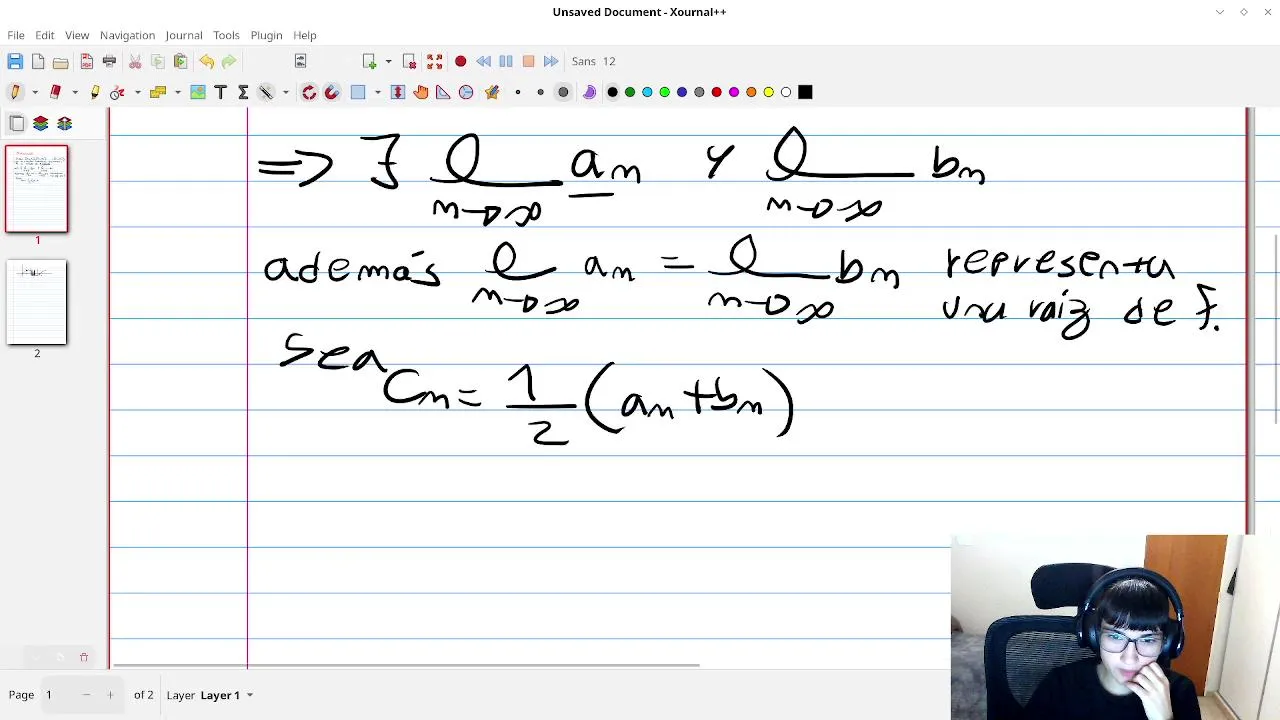 Unsaved Document - Xournal++
File Edit View Navigation Journal Tools Plugin Help
Sans 12
=> ∃ l an y l bn
n→∞ n→∞
además l an = l bn representa
n→∞ n→∞ una raiz de f.
sea
Cn = 1/2 (an+bn)
1
2
Page 1 of 2 Layer Layer1